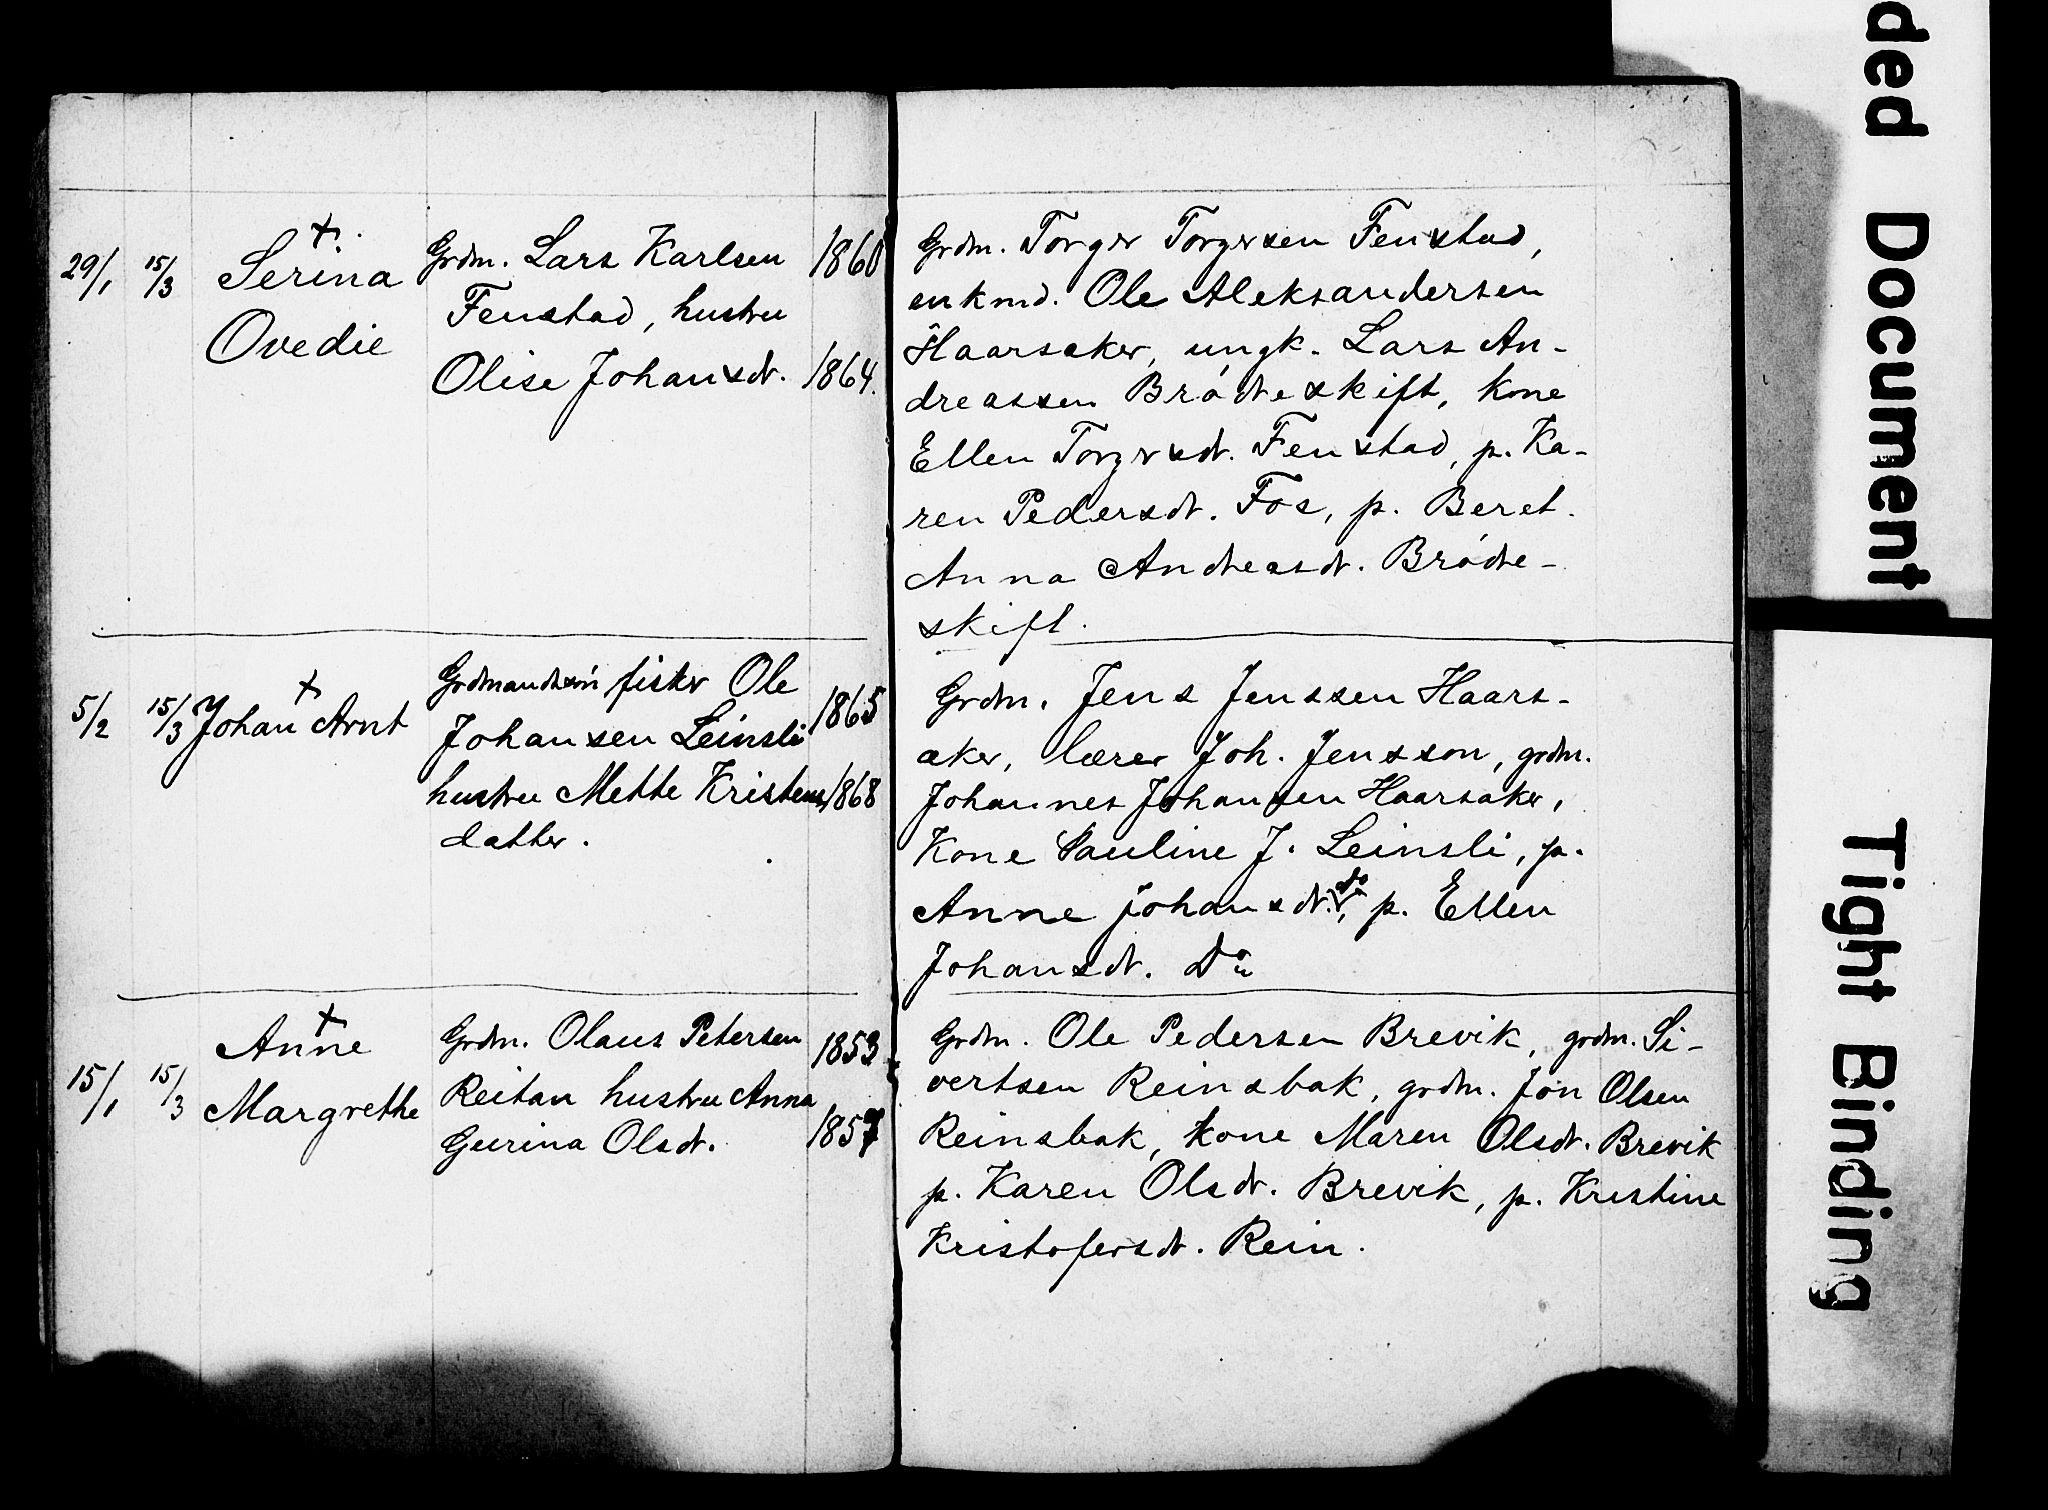 29/1 15/3 Serina
Ovedie
Grdm. Lars Karlsen 1860
Fenstad, hustru
Olise Johansdt. 1864.
Grdm. Torger Torgersen Fenstad,
enkmd. Ole Aleksandersen
Haarsaker, ungk. Lars An-
dreassen Brødreskift, kone
Ellen Torgersdt. Fenstad, p. Ka-
ren Pedersdt. Fos, p. Beret.
Anna Andreasdt. Brødre-
skift.
5/2 15/3 Johan Arnt
Grdmandssøn fisker Ole
Johansen Leinsli 1865
hustru Mette Kristens 1868
datter.
Grdm. Jens Jenssen Haars-
aker, lærer Joh. Jensson, grdm.
Johannes Johansen Haarsaker,
Kone Pauline J. Leinsli, p.
Anne Johansdt. do, p. Ellen
Johansdt. Do
15/1 15/3 Anne
Margrethe
Grdm. Olaus Petersen 1853
Reitan hustru Anna
Gurina Olsdt. 1857
Grdm. Ole Pedersen Brevik, grdm. Si-
vertsen Reinsbak, grdm. Jon Olsen
Reinsbak, kone Maren Olsdt. Brevik
p. Karen Olsdt. Brevik, p. Kristine
Kristofersdt. Rein.
ded Document
Tight Binding